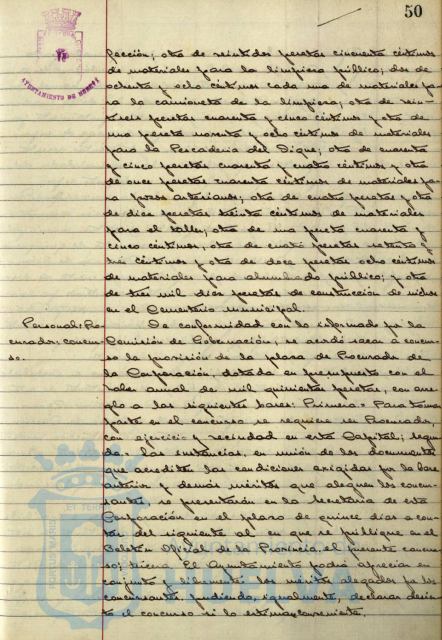 50
AYUNTAMIENTO DE HUELVA
pección; otra de veintidos pesetas cincuenta céntimos
de materiales para la limpieza pública; dos de
ochenta y ocho céntimos cada una de materiales pa-
ra la camioneta de la limpieza; otra de vein-
tiseis pesetas cuarenta y cinco céntimos y otra de
una peseta noventa y ocho céntimos de materiales
para la Pescadería del Dique; otra de cuarenta
y cinco pesetas cuarenta y cuatro céntimos y otra
de once pesetas cuarenta céntimos de materiales pa-
ra pozos artesianos; otra de cuatro pesetas y otra
de diez pesetas treinta céntimos de materiales
para el taller; otra de una peseta cuarenta y
cinco céntimos, otra de cuatro pesetas setenta y
tres céntimos y otra de doce pesetas ocho céntimos
de materiales para alumbrado público; y otra
de tres mil diez pesetas de construcción de nichos
en el Cementerio municipal.
Personal: Pro-
curador: concur-
so.
De conformidad con lo informado por la
Comisión de Gobernación, se acordó sacar a concur-
so la provisión de la plaza de Procurador de
la Corporación, dotada en presupuesto con el
haber anual de mil quinientas pesetas, con arre-
glo a las siguientes bases: Primera = Para tomar
parte en el concurso se requiere ser Procurador,
con ejercicio y vecindad en esta Capital; segun-
da. las instancias, en unión de los documentos
que acrediten las condiciones exigidas por la base
anterior y demás méritos que aleguen los concur-
santes se presentarán en la Secretaría de esta
Corporación en el plazo de quince días a con-
tar del siguiente al en que se publique en el
Boletín Oficial de la Provincia, el presente concur-
so; tercera. El Ayuntamiento podrá apreciar en
conjunto y libremente los méritos alegados por los
concursantes, pudiendo, igualmente, declarar desier-
to el concurso si lo estima conveniente.